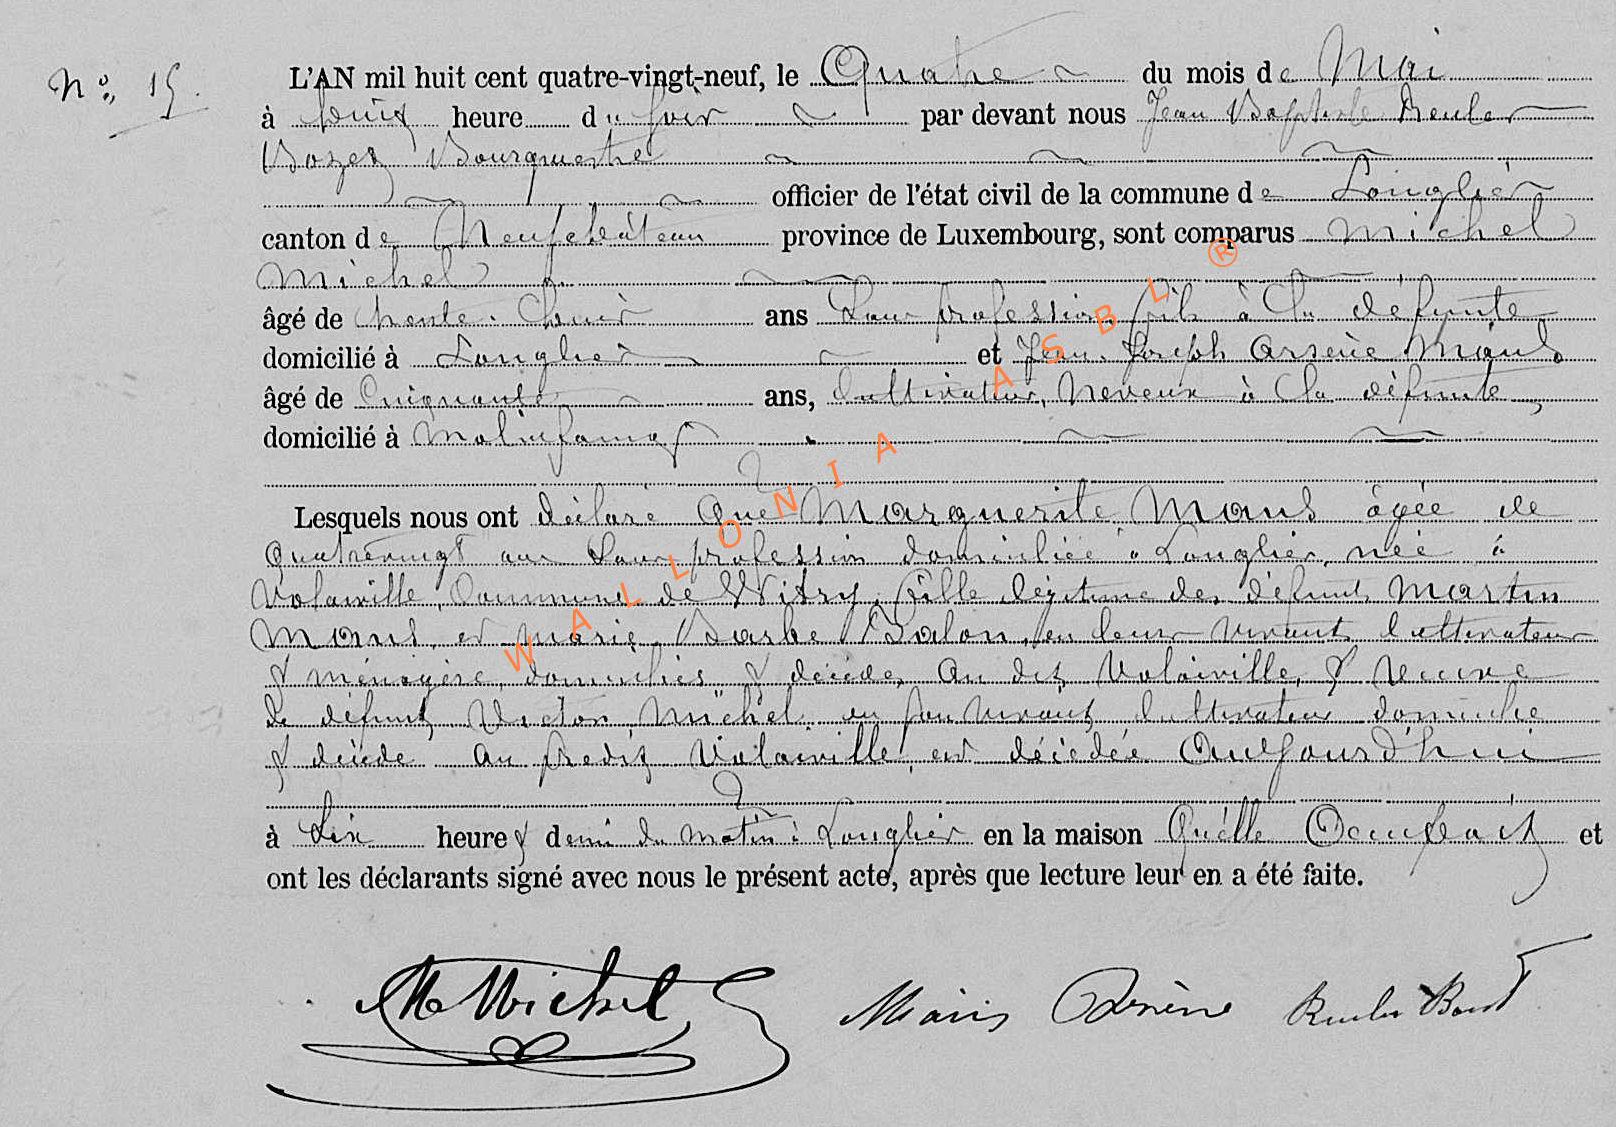 N° 15.
L'AN mil huit cent quatre-vingt-neuf, le Quatre du mois de Mai
à heure du soir par devant nous Jean Baptiste Reuler
Bourgmestre
officier de l'état civil de la commune de Longlier
canton de Neufchâteau province de Luxembourg, sont comparus Michel
Michel
âgé de trente ans Sans profession, fils à la défunte
domicilié à Longlier et Jean Joseph Arsène Maus
âgé de Cinquante ans, Cultivateur, Neveux à la défunte,
domicilié à Molinfaing
Lesquels nous ont déclaré que Marguerite Maus âgée de
quatrevingt ans Sans profession domiciliée à Longlier, née à
Volaiville, Commune de Witry, fille légitime des défunts Martin
Maus, et Marie Barbe en leur vivant Cultivateur
& ménagère, domiciliés & décédés au dit Volaiville, & veuve
de défunt Victor Michel en son vivant Cultivateur domicilié
& décédé au predit Volaiville, est décédée Aujourd'hui
à Six heure & demi du matin à Longlier en la maison Qu'elle Occupait et
ont les déclarants signé avec nous le présent acte, après que lecture leur en a été faite.
M Michel Arsène
WALLONIA ASBL ®